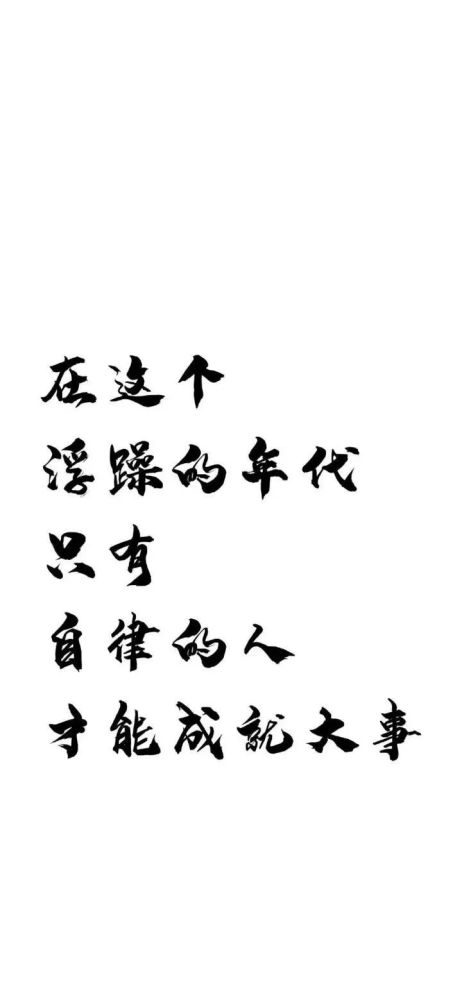 在这个
浮躁的年代
只有
自律的人
才能成就大事